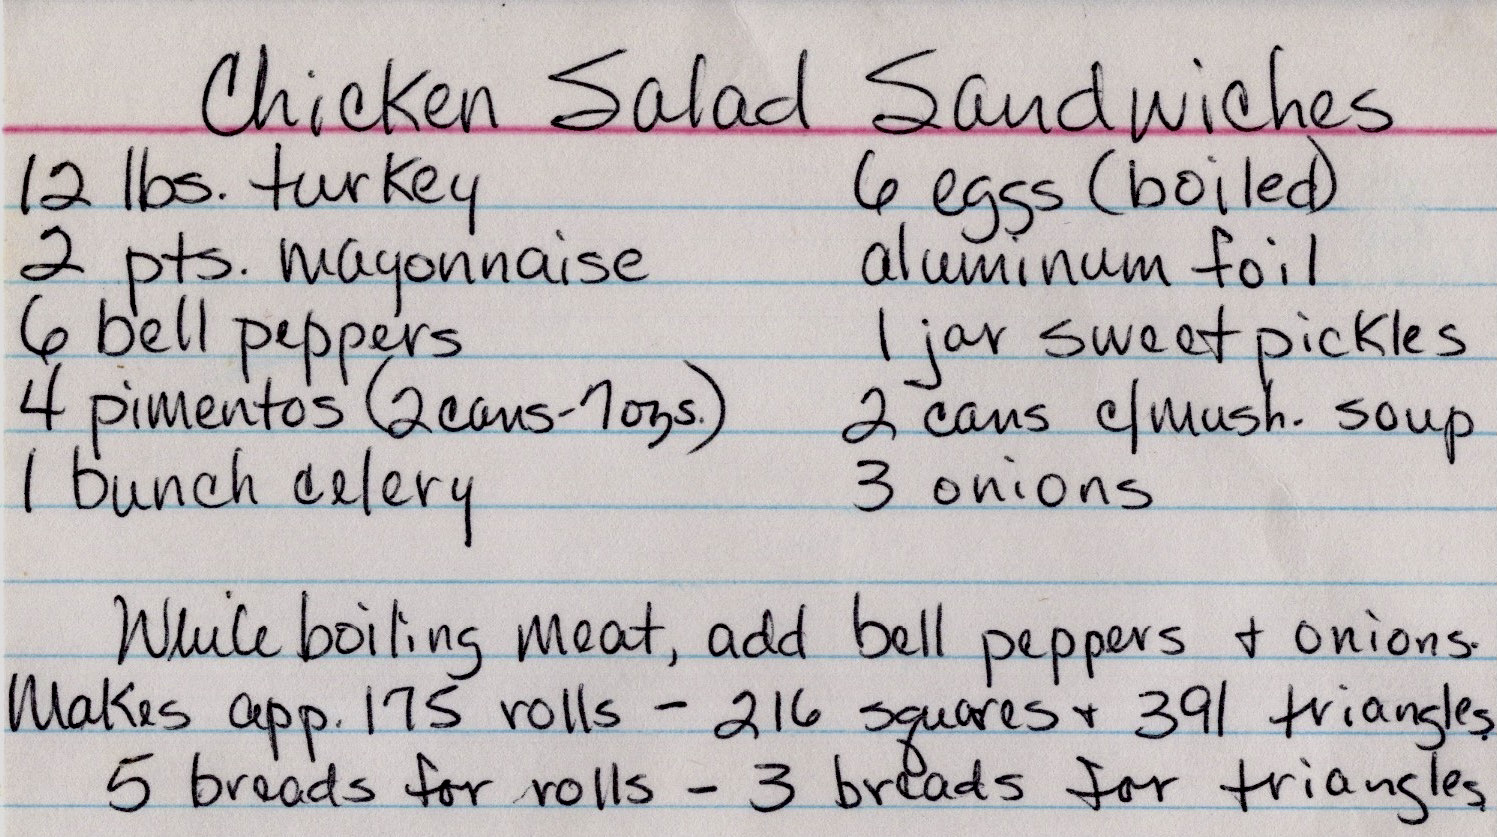 Chicken Salad Sandwiches
12 lbs. turkey
2 pts. mayonnaise
6 bell peppers
4 pimentos (2 cans-7ozs.)
1 bunch celery
6 eggs (boiled)
aluminum foil
1 jar sweet pickles
2 cans c/mush. soup
3 onions
While boiling meat, add bell peppers + onions.
Makes app. 175 rolls - 216 squares + 391 triangles.
5 breads for rolls - 3 breads for triangles.